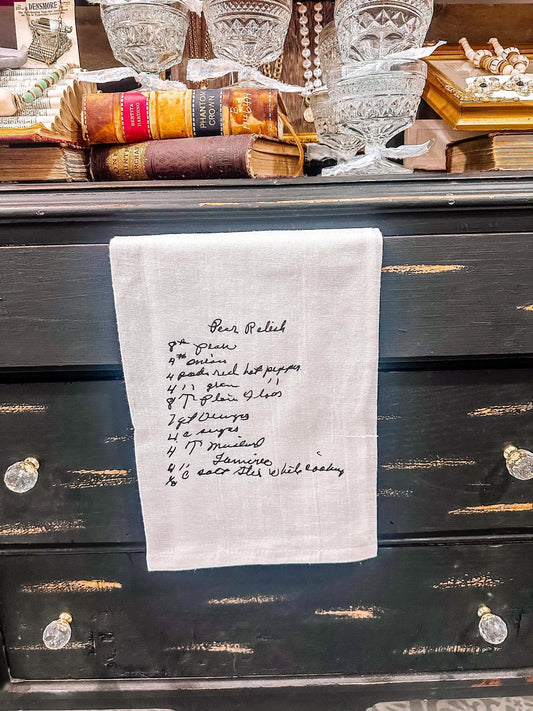 DENSMORE
HENRIETTA
HARDING
PHANTOM
CROWN
Pear Relish
8 # pears
4 # onions
4 pods red hot peppers
4 " green "
8 T Plain Flour
1 qt Vinegar
4 c sugar
4 T Mustard
4 " Tumeric
1/2 C salt Stir while cooking